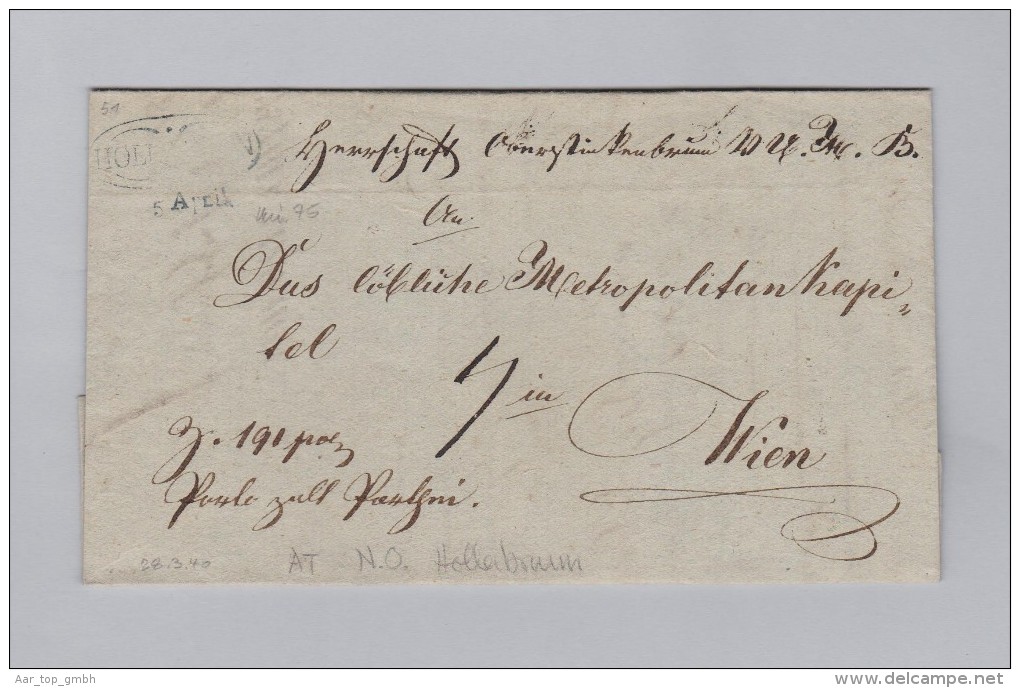 51
HOLL
5 April
Herrschaft Oberstinkenbrunn V. U. M. B.
An
Das löbliche Metropolitan Kapi„
tel
in
Wien
Z. 191 pol
Porto zalt Parthei.
28.3.40 AT N.O. Hollabrunn
Aar_top_gmbh
delcampe.net